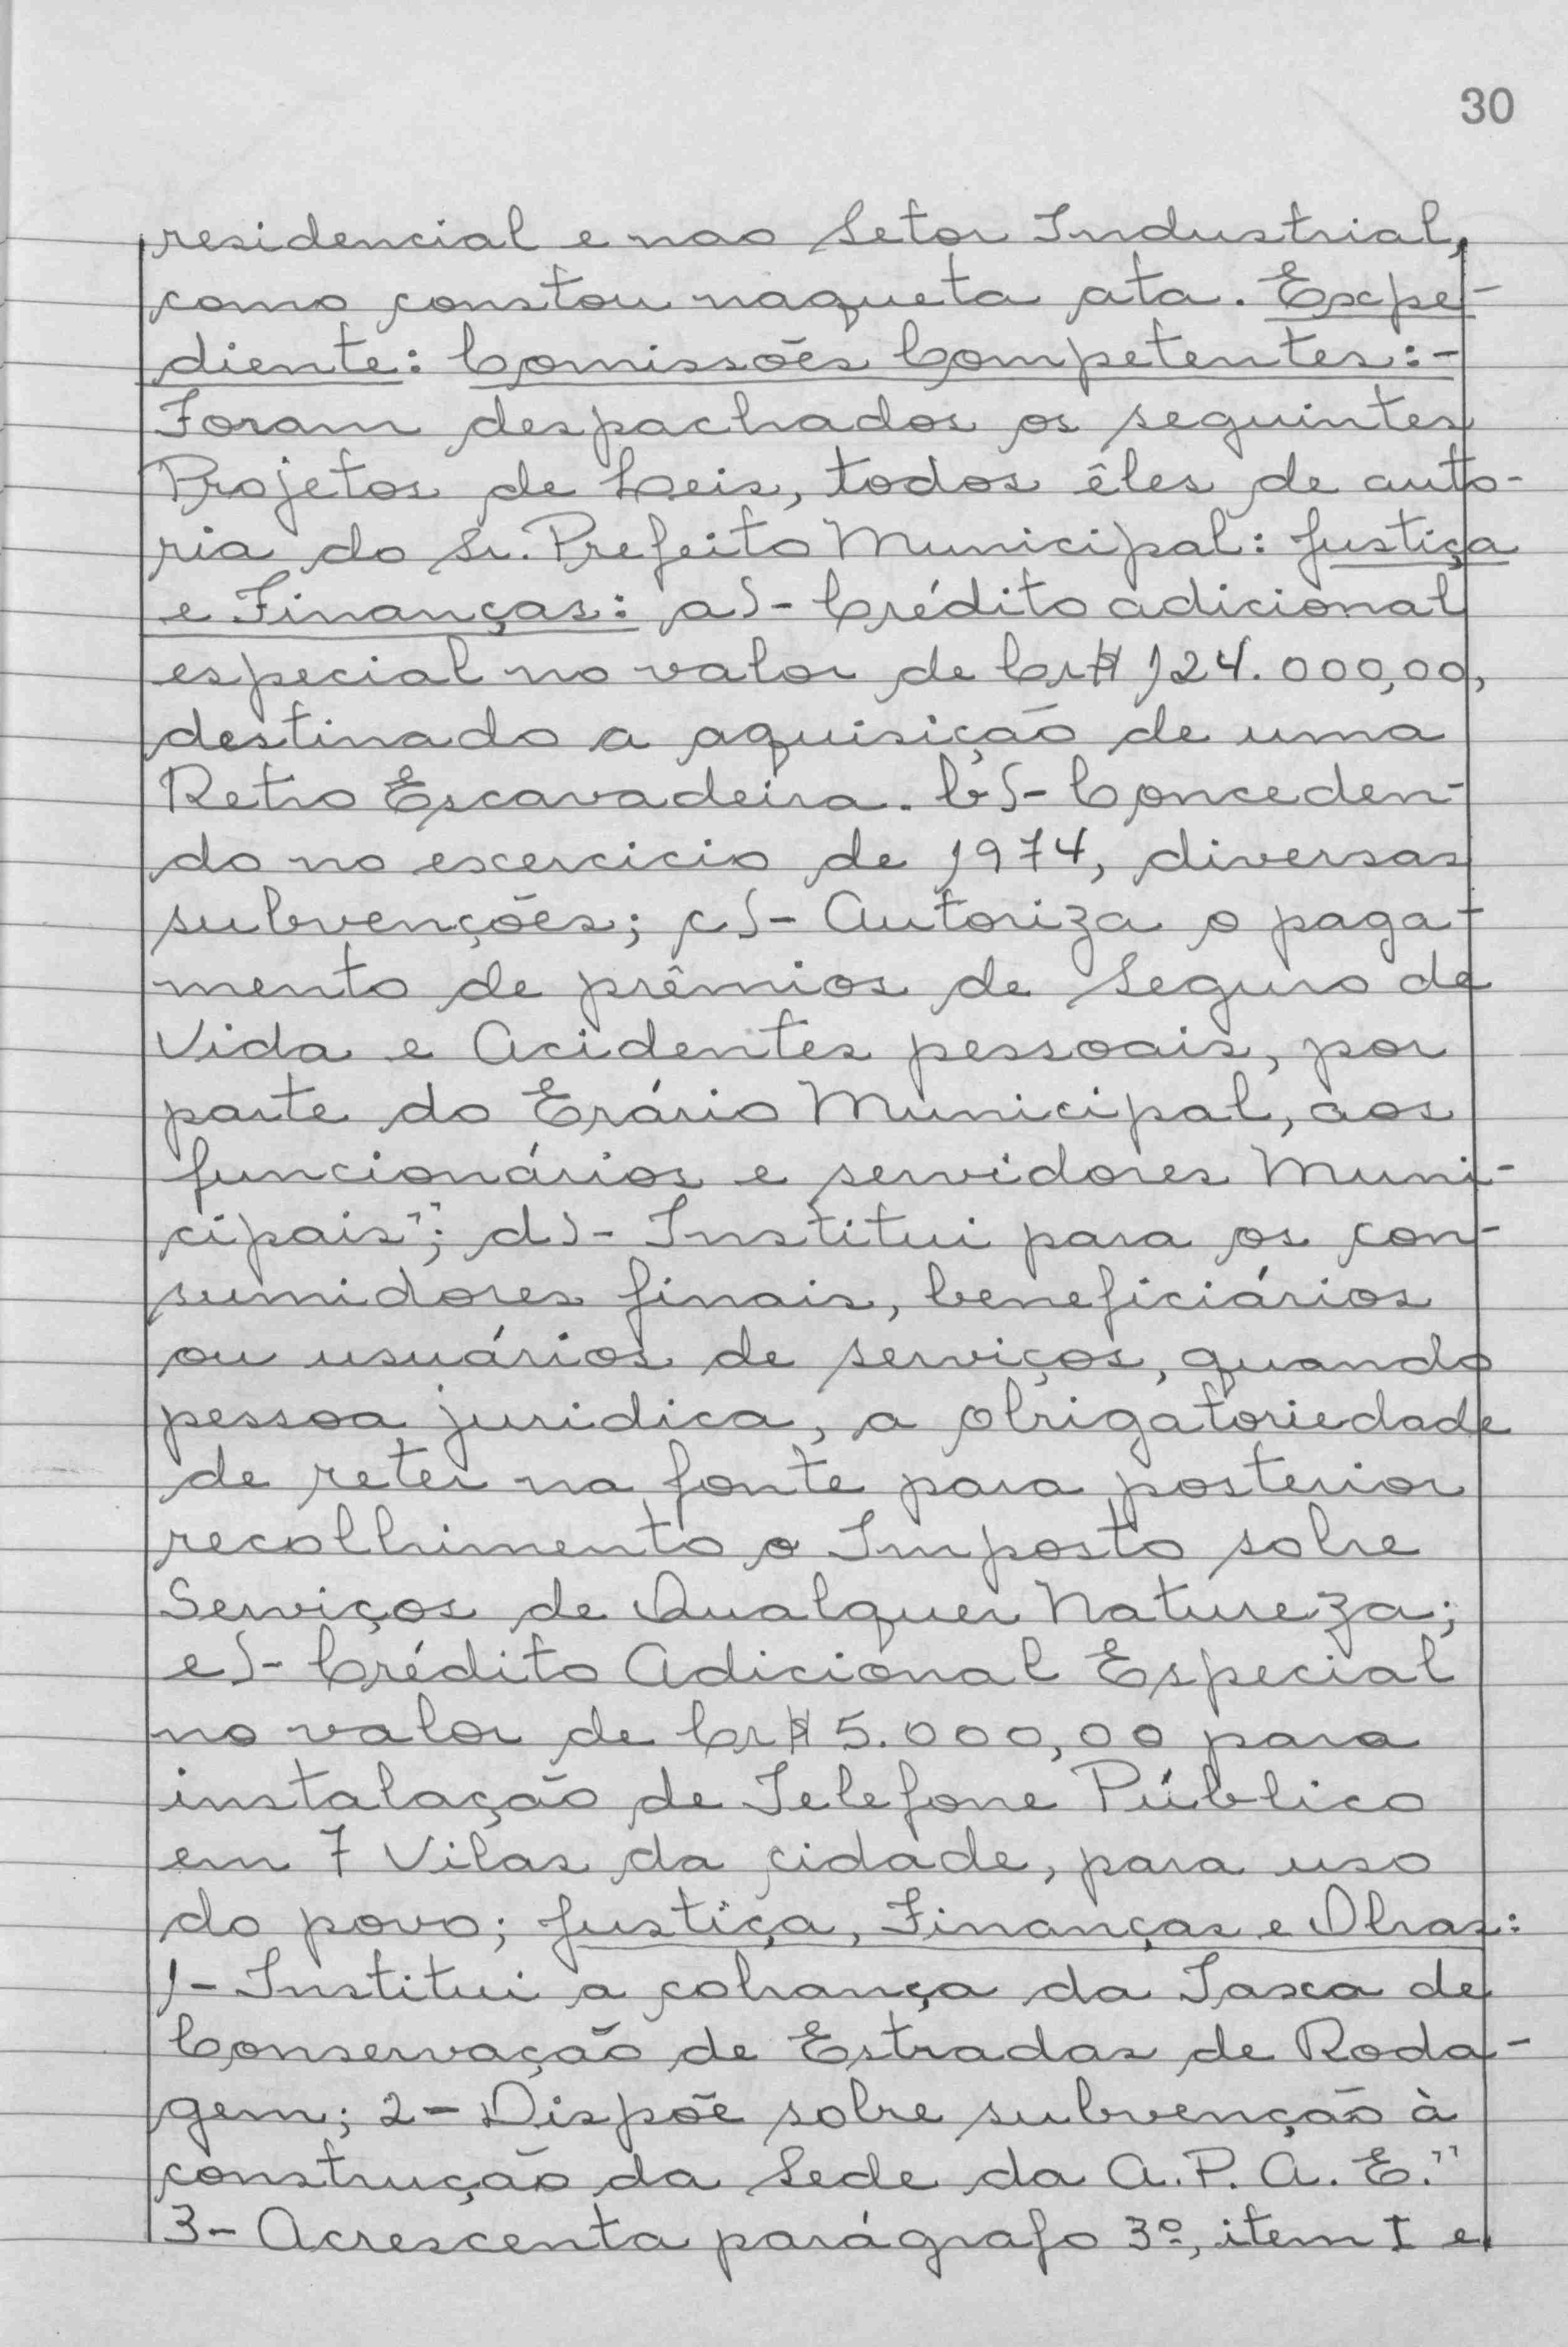 30
residencial e nao Setor Industrial,
como constou naqueta ata. Expe-
diente: Comissões Competentes:-
Foram despachados os seguintes
Projetos de Leis, todos êles de auto-
ria do Sr. Prefeito Municipal: Justiça
e Finanças: a)- Crédito adicional
especial no valor de Cr$ 124.000,00,
destinado a aquisição de uma
Retro Escavadeira. b)- Conceden-
do no exercicio de 1974, diversas
subvenções; c)- Autoriza o paga-
mento de prêmios de Seguro de
Vida e Acidentes pessoais, por
parte do Erário Municipal, aos
funcionários e servidores Muni-
cipais"; d)- Institui para os con-
sumidores finais, beneficiários
ou usuários de serviços, quando
pessoa juridica, a obrigatoriedade
de reter na fonte para posterior
recolhimento o Imposto sobre
Serviços de Qualquer Natureza;
e)- Crédito Adicional Especial
no valor de Cr$ 5.000,00 para
instalação de Telefone Público
em 7 Vilas da cidade, para uso
do povo; Justiça, Finanças e Obras:
1- Institui a cobrança da Taxa de
Conservação de Estradas de Roda-
gem; 2- Dispõe sobre subvenção à
construção da Sede da A.P.A.E."
3- Acrescenta parágrafo 3º, item I e